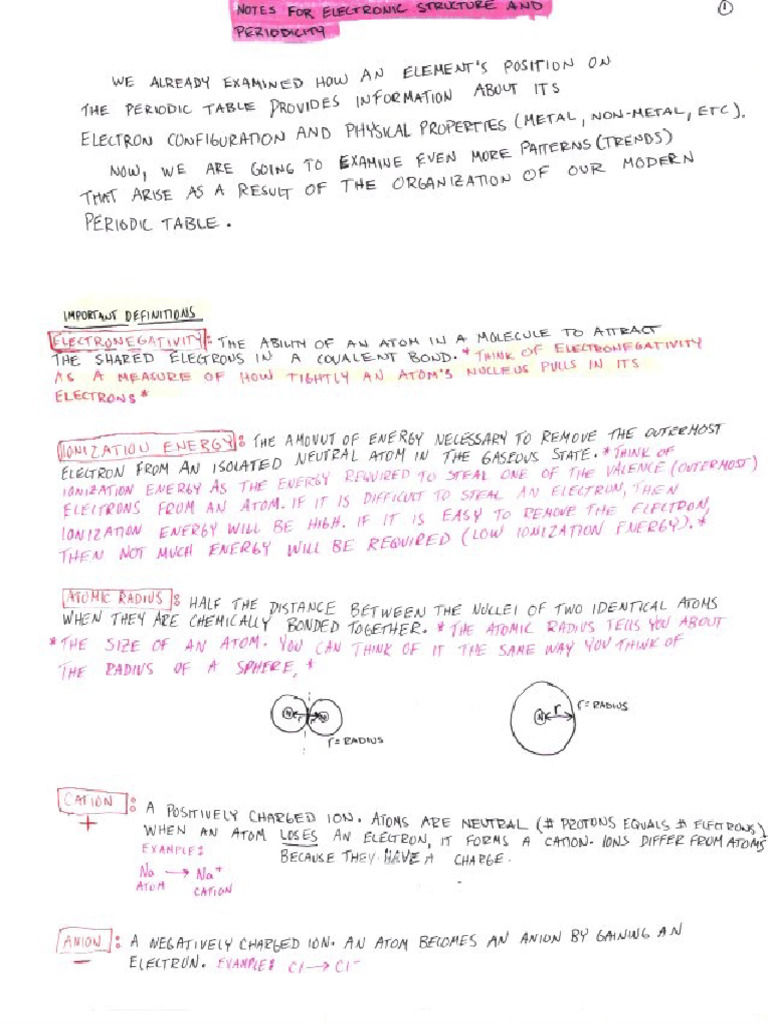 NOTES FOR ELECTRONIC STRUCTURE AND
PERIODICITY
1
WE ALREADY EXAMINED HOW AN ELEMENT'S POSITION ON
THE PERIODIC TABLE PROVIDES INFORMATION ABOUT ITS
ELECTRON CONFIGURATION AND PHYSICAL PROPERTIES (METAL, NON-METAL, ETC).
NOW, WE ARE GOING TO EXAMINE EVEN MORE PATTERNS (TRENDS)
THAT ARISE AS A RESULT OF THE ORGANIZATION OF OUR MODERN
PERIODIC TABLE.
IMPORTANT DEFINITIONS
ELECTRONEGATIVITY: THE ABILITY OF AN ATOM IN A MOLECULE TO ATTRACT
THE SHARED ELECTRONS IN A COVALENT BOND. *THINK OF ELECTRONEGATIVITY
AS A MEASURE OF HOW TIGHTLY AN ATOM'S NUCLEUS PULLS IN ITS
ELECTRONS*
IONIZATION ENERGY: THE AMOUNT OF ENERGY NECESSARY TO REMOVE THE OUTERMOST
ELECTRON FROM AN ISOLATED NEUTRAL ATOM IN THE GASEOUS STATE. *THINK OF
IONIZATION ENERGY AS THE ENERGY REQUIRED TO STEAL ONE OF THE VALENCE (OUTERMOST)
ELECTRONS FROM AN ATOM. IF IT IS DIFFICULT TO STEAL AN ELECTRON, THEN
IONIZATION ENERGY WILL BE HIGH. IF IT IS EASY TO REMOVE THE ELECTRON,
THEN NOT MUCH ENERGY WILL BE REQUIRED (LOW IONIZATION ENERGY).*
ATOMIC RADIUS: HALF THE DISTANCE BETWEEN THE NUCLEI OF TWO IDENTICAL ATOMS
WHEN THEY ARE CHEMICALLY BONDED TOGETHER. *THE ATOMIC RADIUS TELLS YOU ABOUT
*THE SIZE OF AN ATOM. YOU CAN THINK OF IT THE SAME WAY YOU THINK OF
THE RADIUS OF A SPHERE.*
N r r N
r = RADIUS
N r
r = RADIUS
CATION: A POSITIVELY CHARGED ION. ATOMS ARE NEUTRAL (# PROTONS EQUALS # ELECTRONS)
+
WHEN AN ATOM LOSES AN ELECTRON, IT FORMS A CATION. IONS DIFFER FROM ATOMS
BECAUSE THEY HAVE A CHARGE.
EXAMPLE:
Na → Na⁺
ATOM CATION
ANION: A NEGATIVELY CHARGED ION. AN ATOM BECOMES AN ANION BY GAINING AN
−
ELECTRON. EXAMPLE: Cl → Cl⁻